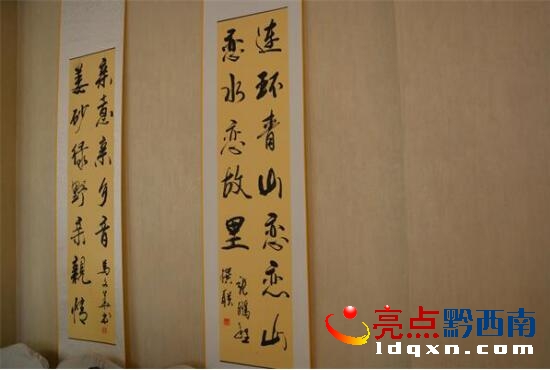 連环青山恋恋山
恋水恋故里
撰联
姜砂绿野亲親情
亲意亲乡音
亮点黔西南
ldqxn.com